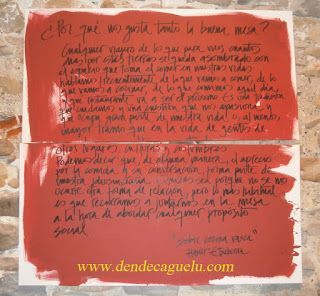 ¿Por qué nos gusta tanto la buena mesa?
Cualquier viajero de los que pasa unos cuantos
días por estas tierras se queda asombrado con
el espacio que toma el comer en nuestras vidas.
hablamos frecuentemente de lo que vamos a comer, de lo
que vamos a cocinar, de lo que comimos aquel día,
y que seguramente va a ser el próximo. Es
que nos apasiona
y ocupa gran parte de nuestra vida! o, al menos,
mayor tramo que en la vida de gentes de
otros lugares, culturas y costumbres
Podemos decir que, de alguna manera, el aprecio
por la comida y su conversación, forma parte de
nuestra idiosincrasia y quizás sea porque no se nos
ocurre otra forma de relación, pero lo más habitual
es que recurramos a juntarnos en la mesa
a la hora de abordar cualquier propósito
social.
"Sobre cocina vasca"
www.dendecaguelu.com